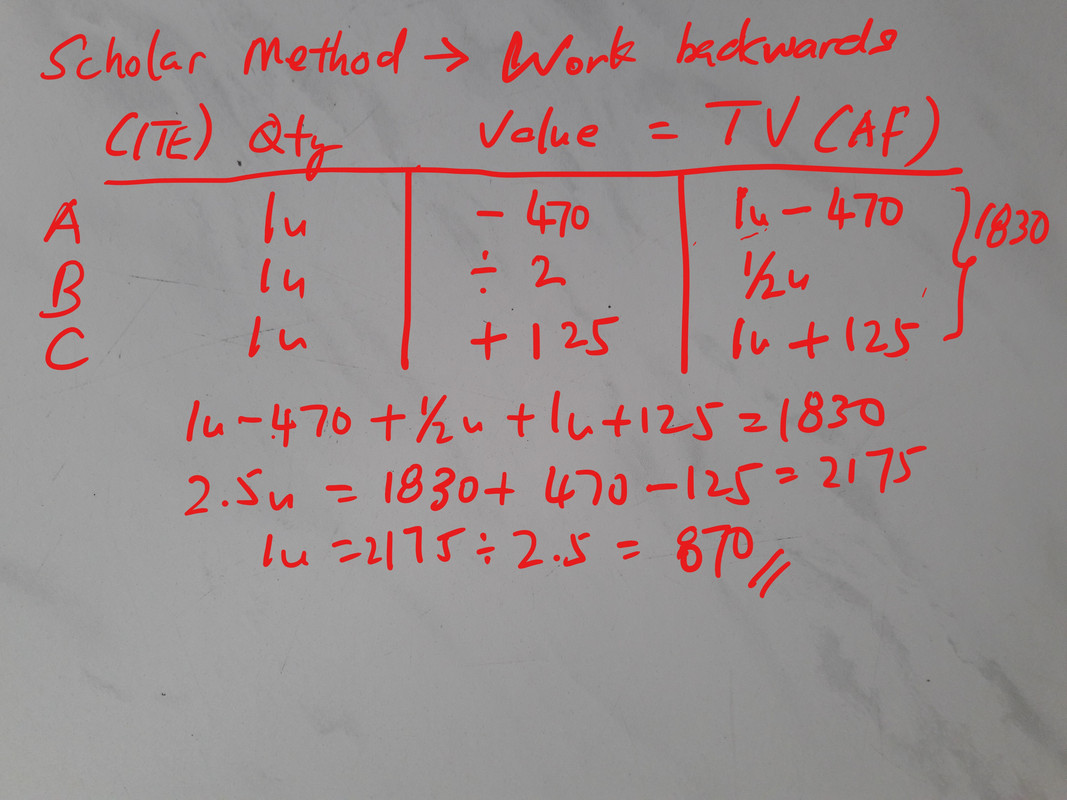 Scholar Method → Work backwards
(ITE) Qty Value = TV (AF)
A 1u - 470 1u - 470
B 1u ÷ 2 ½u
C 1u + 125 1u + 125
1830
1u - 470 + ½u + 1u + 125 = 1830
2.5u = 1830 + 470 - 125 = 2175
1u = 2175 ÷ 2.5 = 870 //